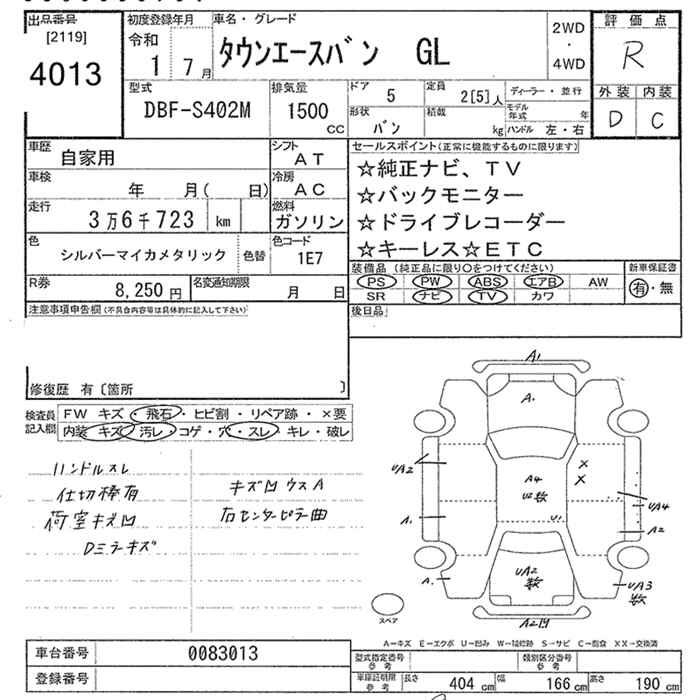 出品番号
[2119]
4013
初度登録年月
令和
1 7月
車名・グレード
タウンエースバン GL
2WD
・
4WD
評価点
R
外装 内装
D C
型式
DBF-S402M
排気量
1500
CC
ドア
5
定員
2[5]人
ディーラー・並行
形状
バン
積載
kg
モデル年式 年
ハンドル 左・右
車歴
自家用
シフト
AT
車検
年 月( 日)
冷房
AC
走行
3万6千723 km
燃料
ガソリン
色
シルバーマイカメタリック
色替
色コード
1E7
R券
8,250円
名変通知期限
月 日
セールスポイント(正常に機能するものに限ります)
☆純正ナビ、TV
☆バックモニター
☆ドライブレコーダー
☆キーレス☆ETC
装備品 (純正品に限り○をつけてください)
PS PW ABS エアB AW
SR ナビ TV カワ
新車保証書
有・無
後日品
注意事項申告欄(不具合内容等は具体的に記入して下さい)
修復歴 有〔箇所 〕
検査員記入欄
FW キズ・飛石・ヒビ割・リペア跡・×要
内装 キズ・汚レ・コゲ・穴・スレ・キレ・破レ
ハンドルスレ
仕切棒有
荷室キズ凹
Dミラーキズ
キズ凹ウスA
右センターピラー曲
A1
A1
UA2
A1
A1
A4
U2数
U1
×
×
UA4
A2
UA2
数
UA3
数
A2凹
スペア
A-キズ E-エクボ U-凹み W-補修跡 S-サビ C-腐食 XX-交換済
車台番号
0083013
登録番号
型式指定番号
参考
類別区分番号
参考
車庫証明用
参考
長さ 404 cm 幅 166 cm 高さ 190 cm